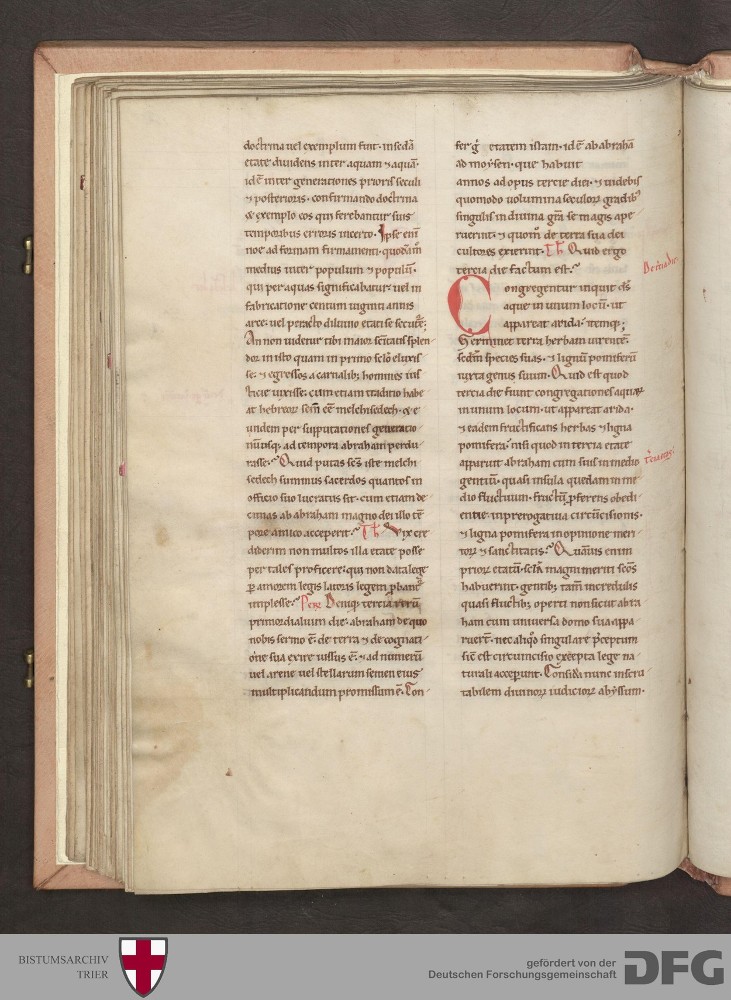 doctrina uel exemplum fiunt. in sed̄a
etate diuidens inter aquam ⁊ aquā.
id ē inter generationes prioris seculi
⁊ posterioris. confirmando doctrina
& exemplo eos qui ferebantur suis
temporibus erroris incerto. Ipse eni͂
noe ad formam firmamenti. quodam͂
medius inter populum ⁊ populū.
qui per aquas significabatur. uel in
fabricatione centum uiginti annis
arce. uel peracto diluuio etati se secut͂e;
An non uidetur tibi maior sc̄itatis splen-
dor in isto quam in primo sc̄lo eluxis
se. ⁊ egressos a carnalib; homines iusti
ticie uixisse. cum etiam traditio habe
at hebreoꝝ sem ēē melchisedech. & e
undem per supputationes generatio
nū usq; ad tempora abraham perdu
rasse. Quid putas sc̄s iste melchi
sedech summus sacerdos quantos in
officio suo lucratus sit. cum etiam de-
cimas ab abraham magno dei illo tē
pore amico acceperit. Th̄ Vix cre
diderim non multos illa etate posse
per tales proficere. qui non data lege
ꝑ amorem legis latoris legem ꝓbant͂
implesse. Peꝛ Deniq; tercia reꝝ
primordialium die. abraham de quo
nobis sermo ē. de terra ⁊ de cognati-
one sua exire iussus ē. ⁊ ad numerū
uel arene uel stellarum semen eius
multiplicandum promissum ē. Con-
fer g̊ etatem istam. id ē ab abrahā
ad moẏsen. que habuit
annos ad opus tercie diei. ⁊ uidebis
quomodo uolumina seculoꝝ gradib;
singulis in diuina gr̄a se magis ape
ruerint. ⁊ quom̊ de terra sua dei
cultores exierint. Th̄ Quid ergo
tercia die factum est.
De tercia die
Congregentur inquit d̄s
aque in unum locū. ut
appareat arida. itemq;;
Germinet terra herbam uirente͂.
sedm̄ species suas. ⁊ lignū pomiferū
iuxta genus suum. Quid est quod
tercia die fiunt congregationes aquaꝝ
in unum locum. ut appareat arida.
⁊ eadem fructificans herbas ⁊ ligna
pomifera. nisi quod in tercia etate
apparuit abraham cum suis in medio
gentiū. quasi insula quedam in me
dio fluctuum. fructū ꝓferens obedi-
entie. in prerogatiua circūcisionis.
⁊ ligna pomifera in opinione meri-
toꝝ ⁊ sanctitatis. Quāuis enim
priorū etatū. sc̄la magni meriti sc̄os
habuerint. gentib; tam̄ incredulis
quasi fluctib; operti non sicut abra
ham cum uniuersa domo sua appa
ruerē. nec aliq̊ singulare p̄ceptum
sic̄ est circumcisio excepta lege na-
turali acceꝑunt. Consid̄a nunc inscru
tabilem diuinoꝝ iudicioꝝ abyssum.
BISTUMSARCHIV
TRIER
gefördert von der
Deutschen Forschungsgemeinschaft
DFG